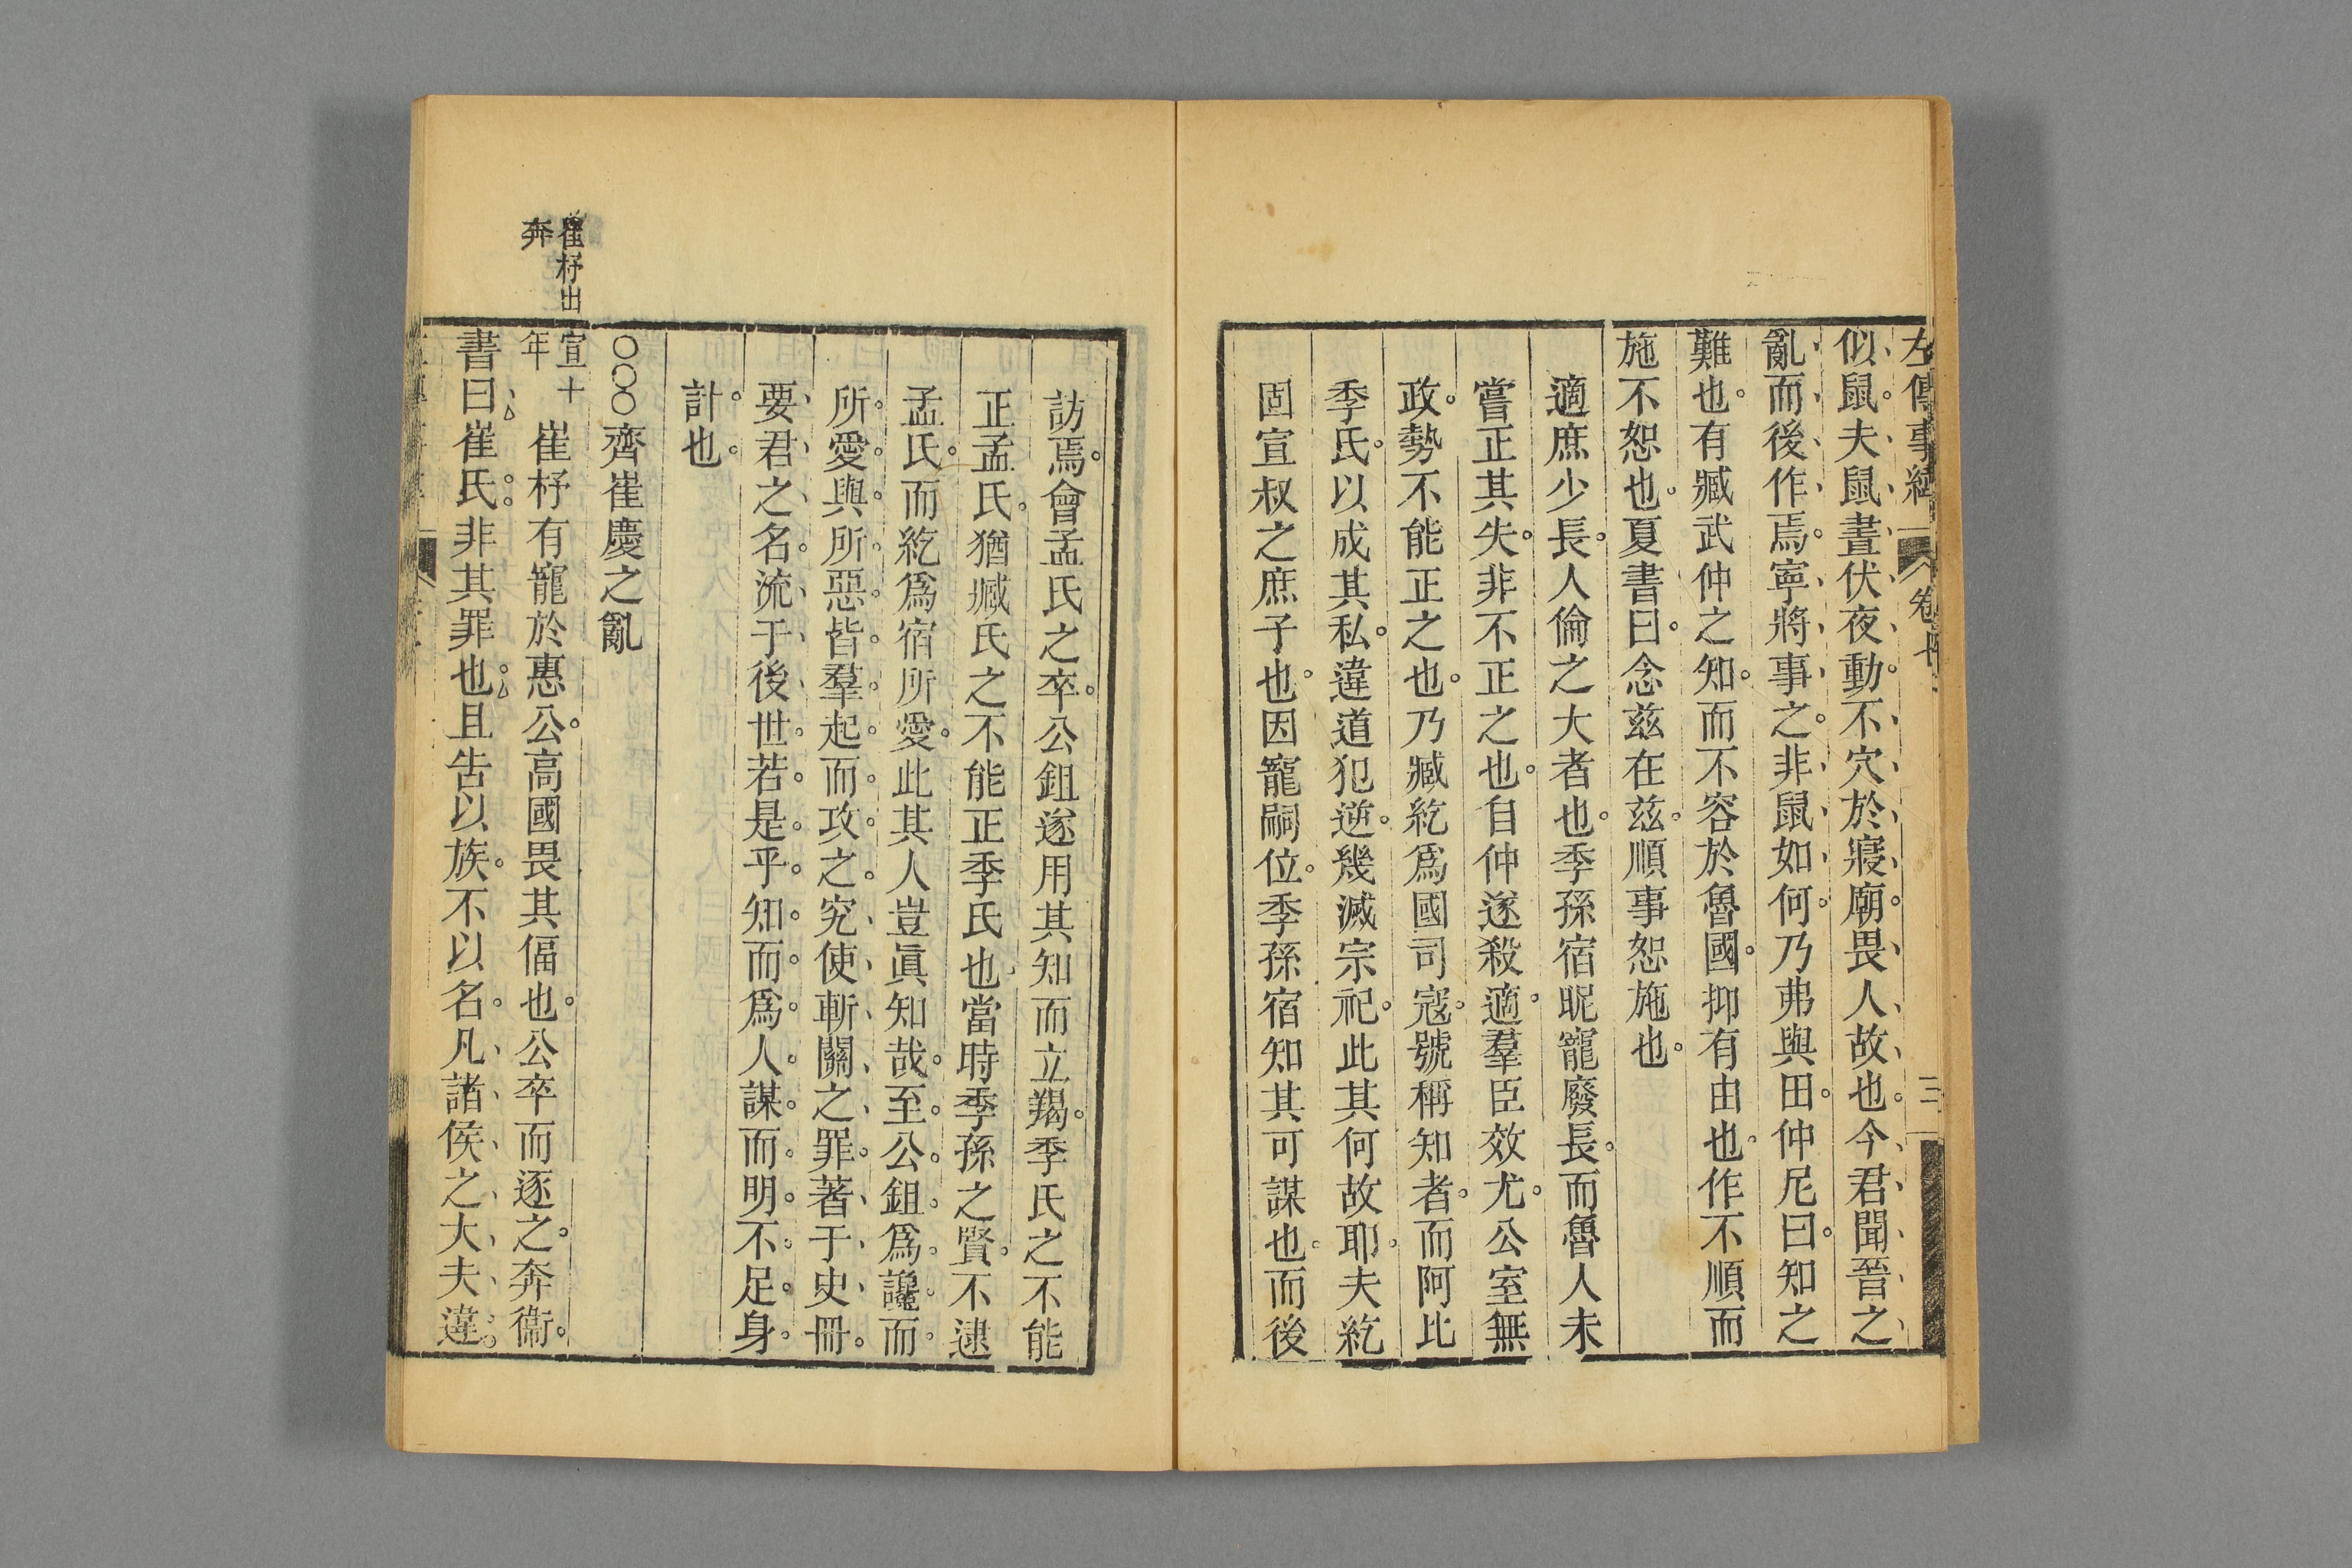 左傳事緯 卷十 三
似鼠。夫鼠晝伏夜動。不穴於寢廟。畏人故也。今君聞晉之
亂而後作焉。寧將事之。非鼠如何。乃弗與田。仲尼曰。知之
難也。有臧武仲之知。而不容於魯國。抑有由也。作不順而
施不恕也。夏書曰。念茲在茲。順事恕施也。
適庶少長。人倫之大者也。季孫宿昵寵廢長。而魯人未
嘗正其失。非不正之也。自仲遂殺適。羣臣效尤。公室無
政。勢不能正之也。乃臧紇爲國司寇。號稱知者。而阿比
季氏。以成其私。違道犯逆。幾滅宗祀。此其何故耶。夫紇
固宣叔之庶子也。因寵嗣位。季孫宿知其可謀也。而後
訪焉。會孟氏之卒。公鉏遂用其知而立羯。季氏之不能
正孟氏。猶臧氏之不能正季氏也。當時季孫之賢。不逮
孟氏。而紇爲宿所愛。此其人豈眞知哉。至公鉏爲讒。而
所愛與所惡皆羣起而攻之。究使斬關之罪。著于史冊。
要君之名。流于後世。若是乎。知而爲人謀。而明不足身
計也。
○○○齊崔慶之亂
崔杼出
奔
宣十
年 崔杼有寵於惠公。高國畏其偪也。公卒而逐之。奔衞。
書曰崔氏。非其罪也。且告以族。不以名。凡諸侯之大夫違。